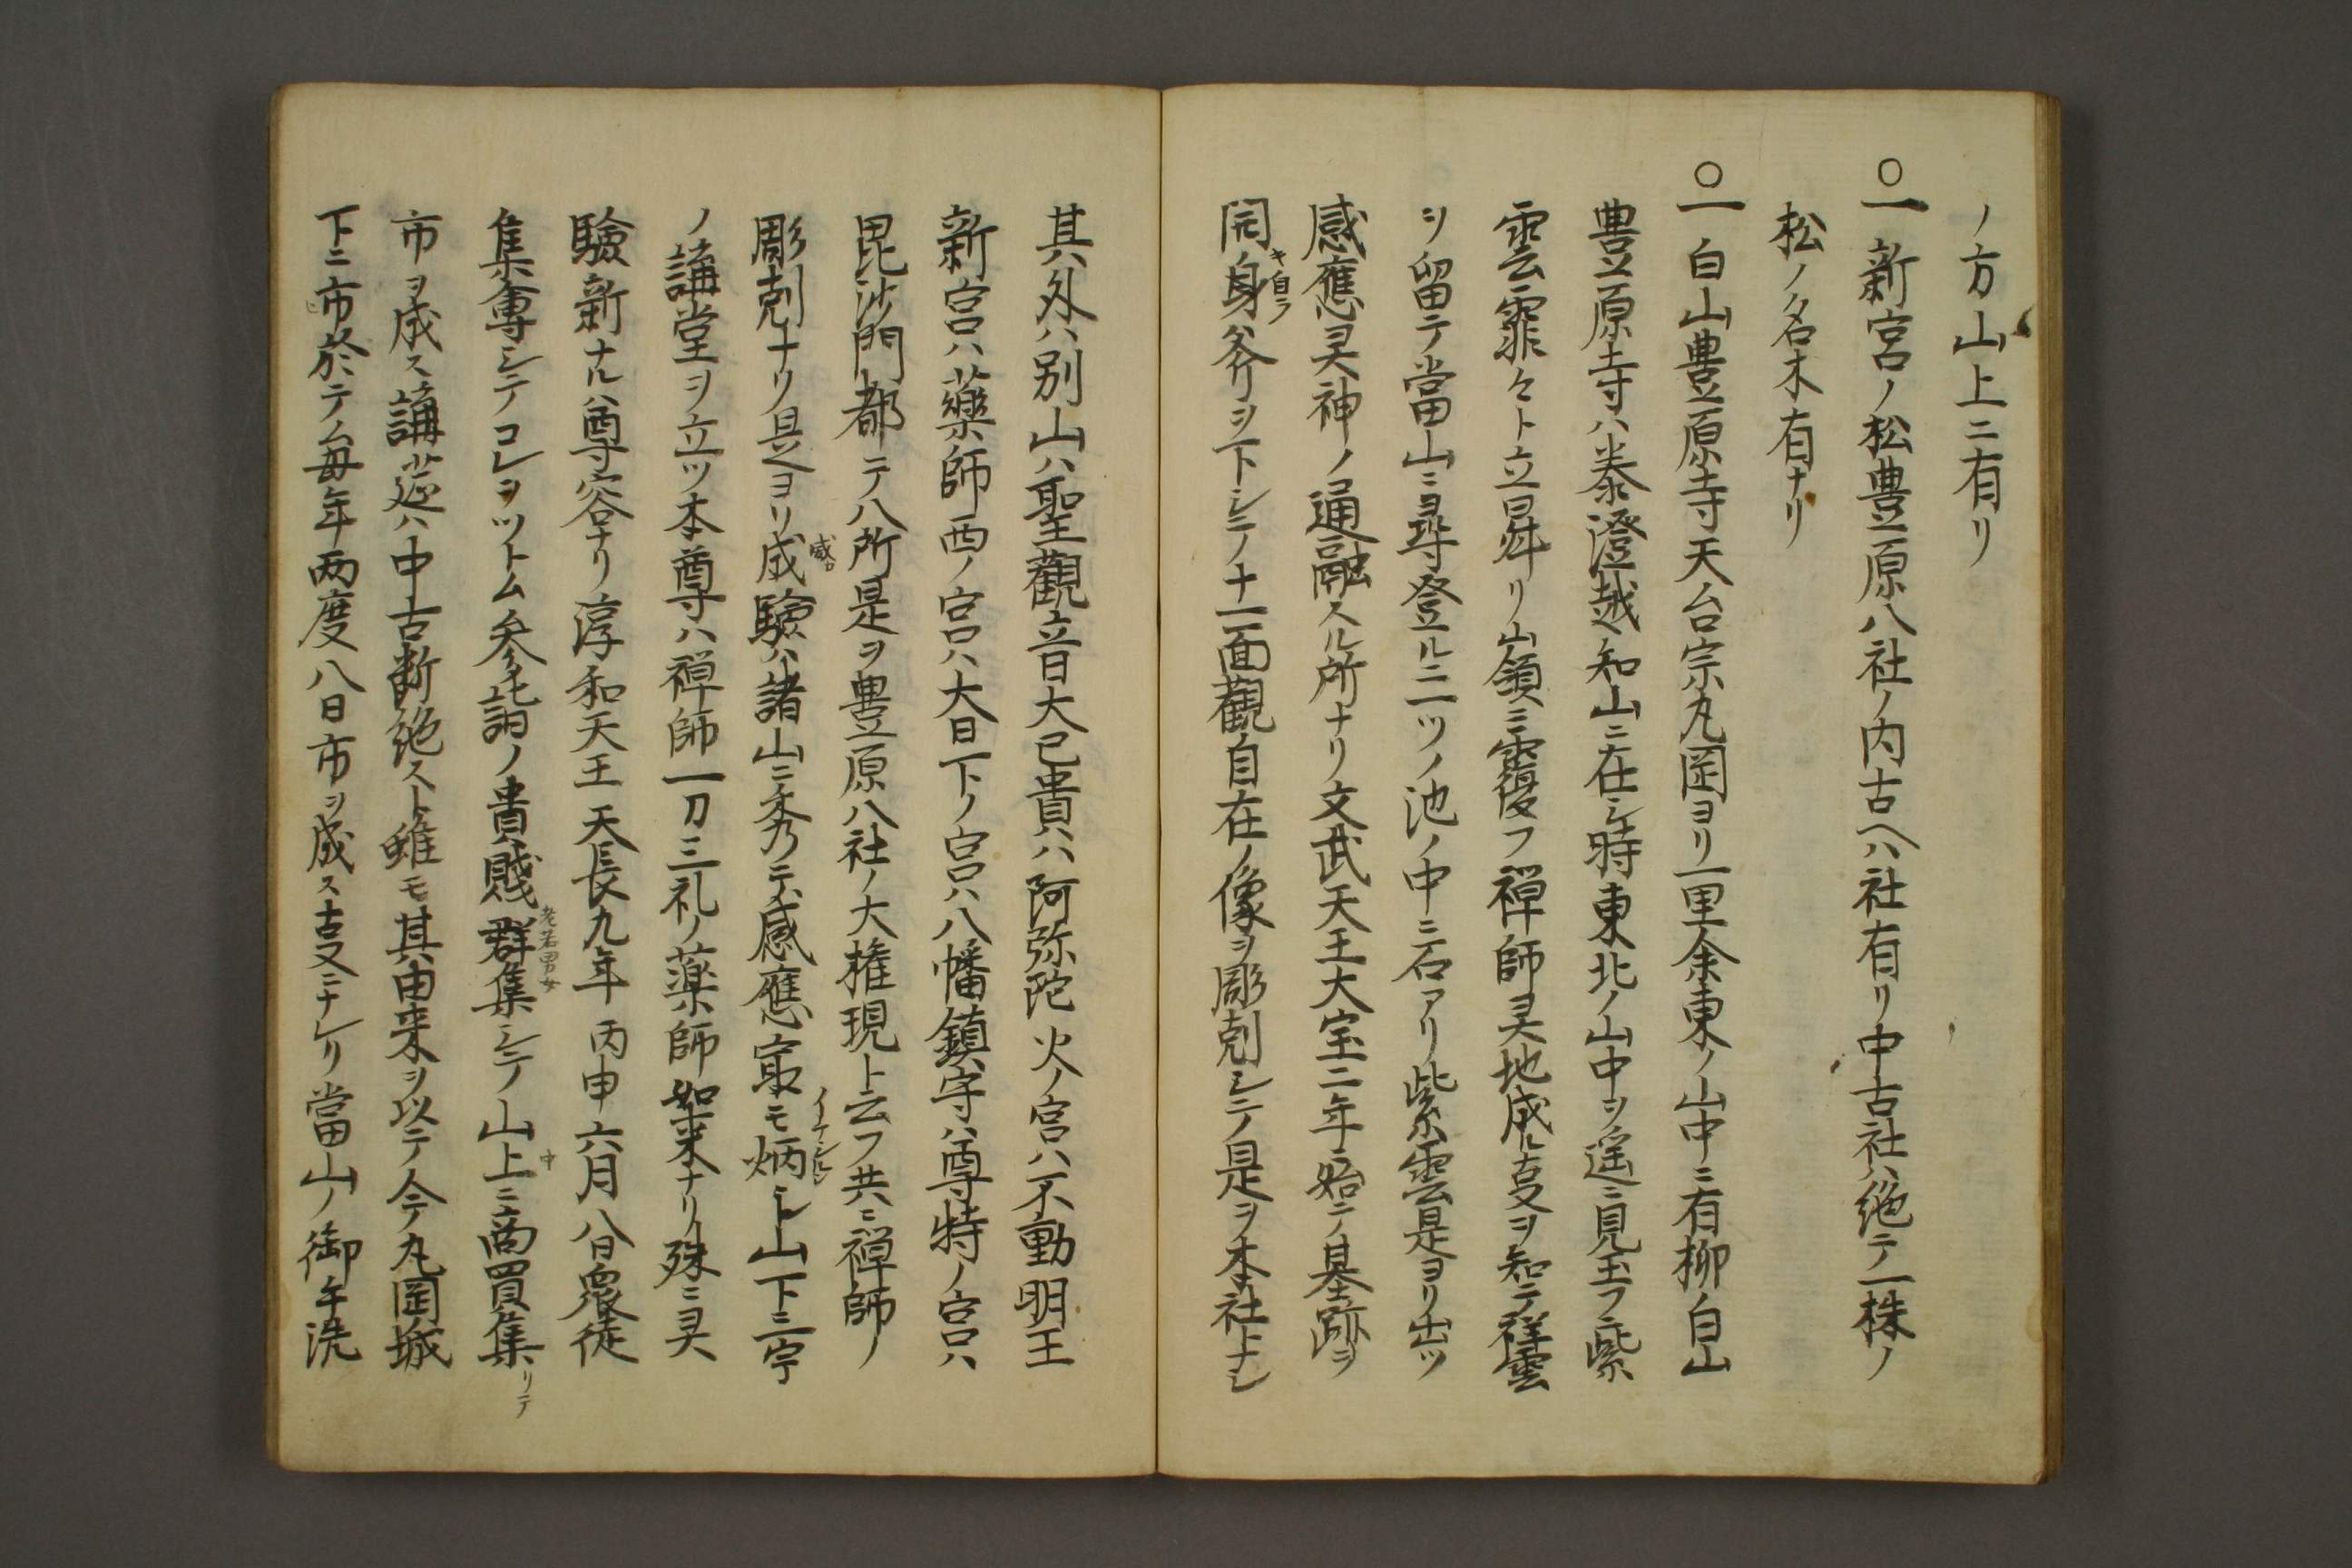 ノ方山上ニ有リ
○一新宮ノ松豊原八社ノ内古ヘハ社有リ中古社ハ絶テ一株ノ
松ノ名木有ナリ
○一白山豊原寺天台宗丸岡ヨリ一里余東ノ山中ニ有柳白山
豊原寺ハ泰澄越知山ニ在シ時東北ノ山中ヲ遥ニ見玉フニ紫
雲霏々ト立昇リ山嶺ニ靉覆フ禅師灵地成ル叓ヲ知テ祥雲
ヲ留テ當山ニ尋登ル二ツノ池ノ中ニ石アリ紫雲是ヨリ出ツ
感應灵神ノ通融スル所ナリ文武天王大宝二年始テ基跡ヲ
開キ自ラ身斧ヲ下シテ十一面觀自在ノ像ヲ彫剋シテ是ヲ本社トナシ
其外ハ別山ハ聖觀音大已貴ハ阿弥陀火ノ宮ハ不動明王
新宮ハ藥師西ノ宮ハ大日下ノ宮ハ八幡鎮守ハ尊特ノ宮ハ
毘沙門都テ八所是ヲ豊原八社ノ大権現ト云フ共ニ禅師ノ
彫剋ナリ是ヨリ成驗ハ諸山ニ秀テ感應寂モ炳シ山下ニ一宇
ノ講堂ヲ立ツ本尊ハ禅師一刀三礼ノ薬師如来ナリ殊ニ灵
驗新ナル尊容ナリ淳和天王天長九年丙申六月八日衆徒
集會シテコレヲツトム参詣ノ貴賤老若男女群集シテ山上中ニ商買集リテ
市ヲ成ス講莚ハ中古断絶スト雖モ其由来ヲ以テ今丸岡城
下ニ市於テ毎年両度八日市ヲ成ス古叓ニナレリ當山ノ御手洗